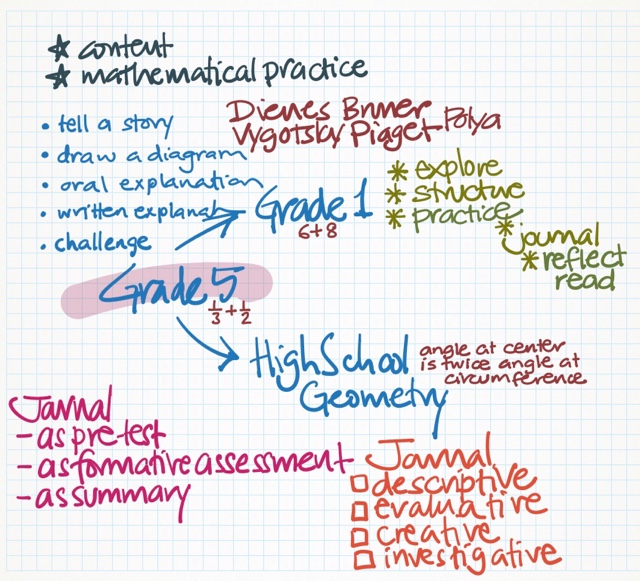 * content
* mathematical practice
Dienes Bruner Polya
Vygotsky Piaget
• tell a story
• draw a diagram
• oral explanation
• written explanat
• challenge
Grade 1
6+8
* explore
* structure
* practice
* journal
* reflect
read
Grade 5
1/3 + 1/2
High School
Geometry
angle at center
is twice angle at
circumference
Journal
- as pretest
- as formative assessment
- as summary
Journal
□ descriptive
□ evaluative
□ creative
□ investigative